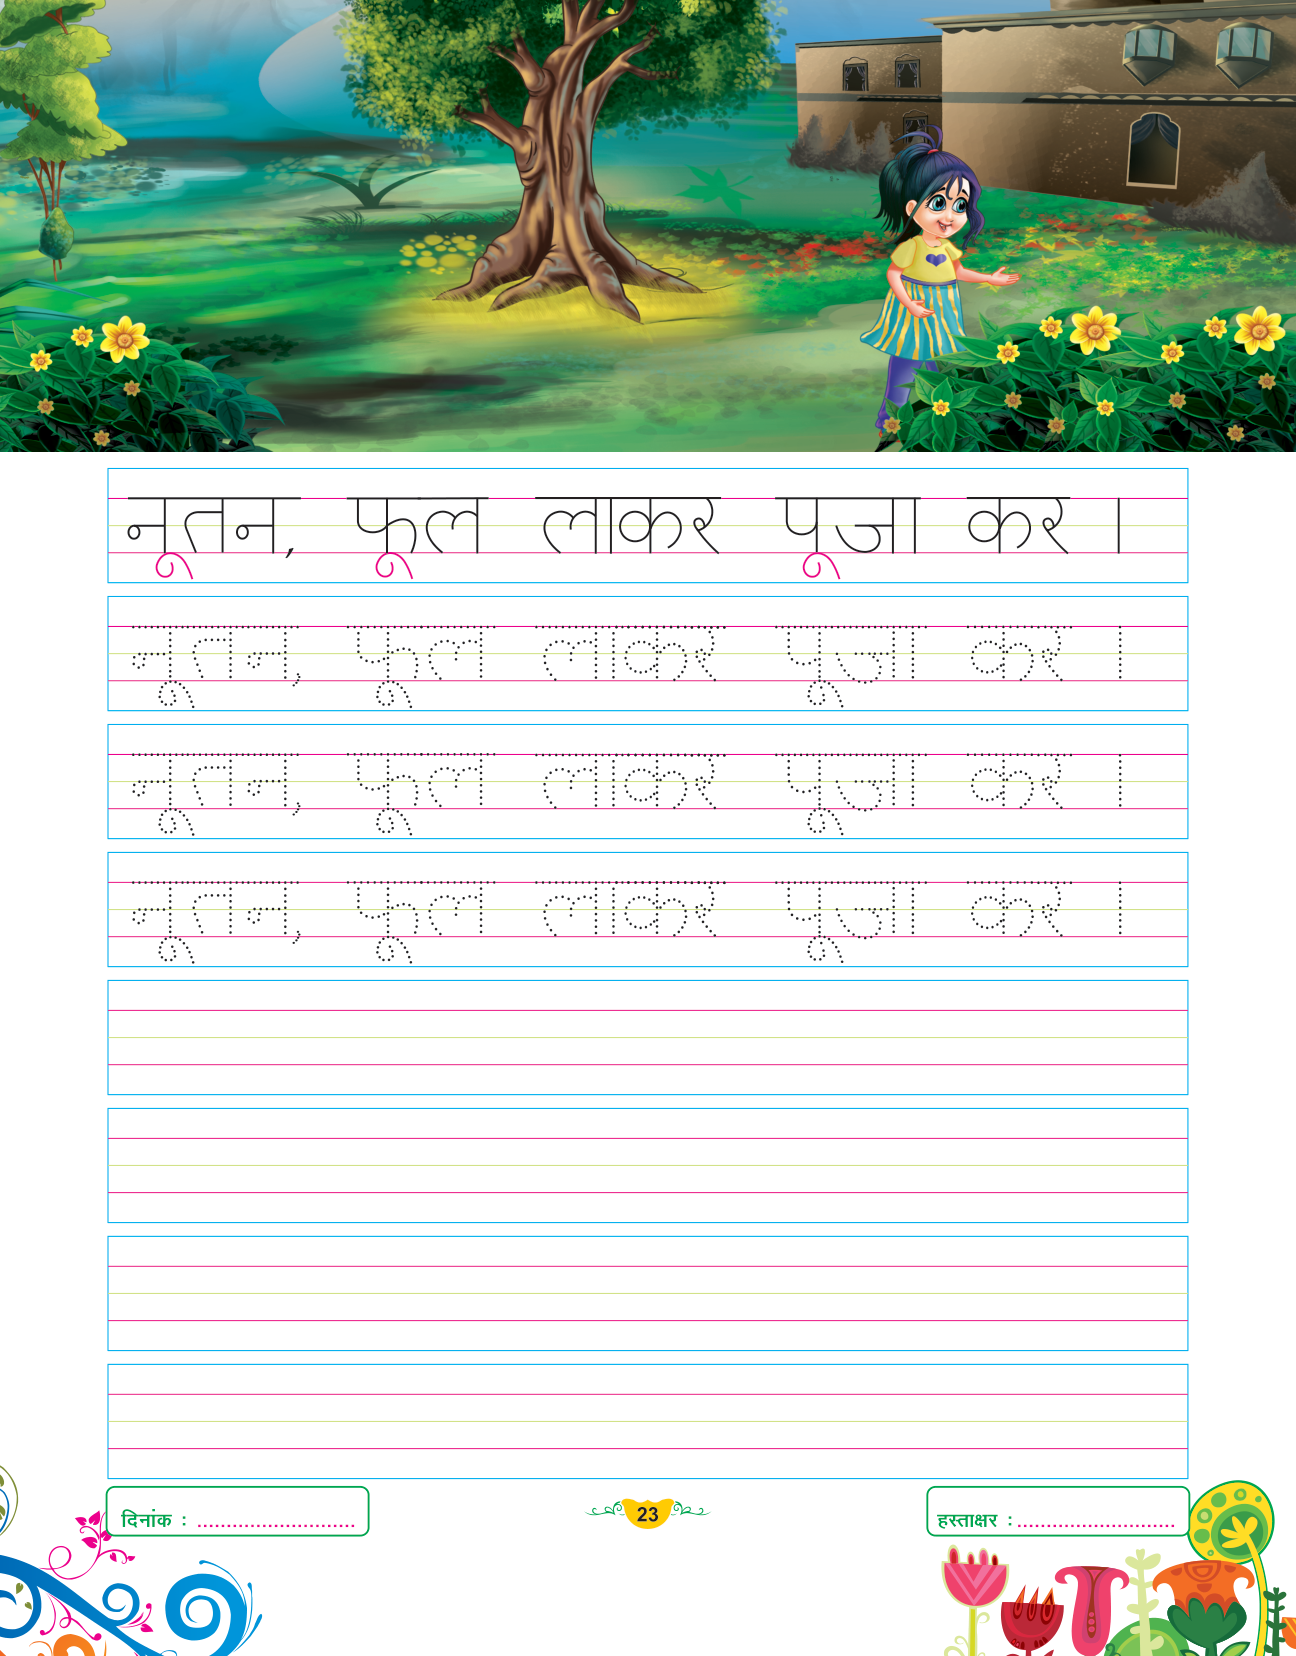 नूतन, फूल लाकर पूजा कर ।
नूतन, फूल लाकर पूजा कर ।
नूतन, फूल लाकर पूजा कर ।
नूतन, फूल लाकर पूजा कर ।
दिनांक : ............................
23
हस्ताक्षर : ............................